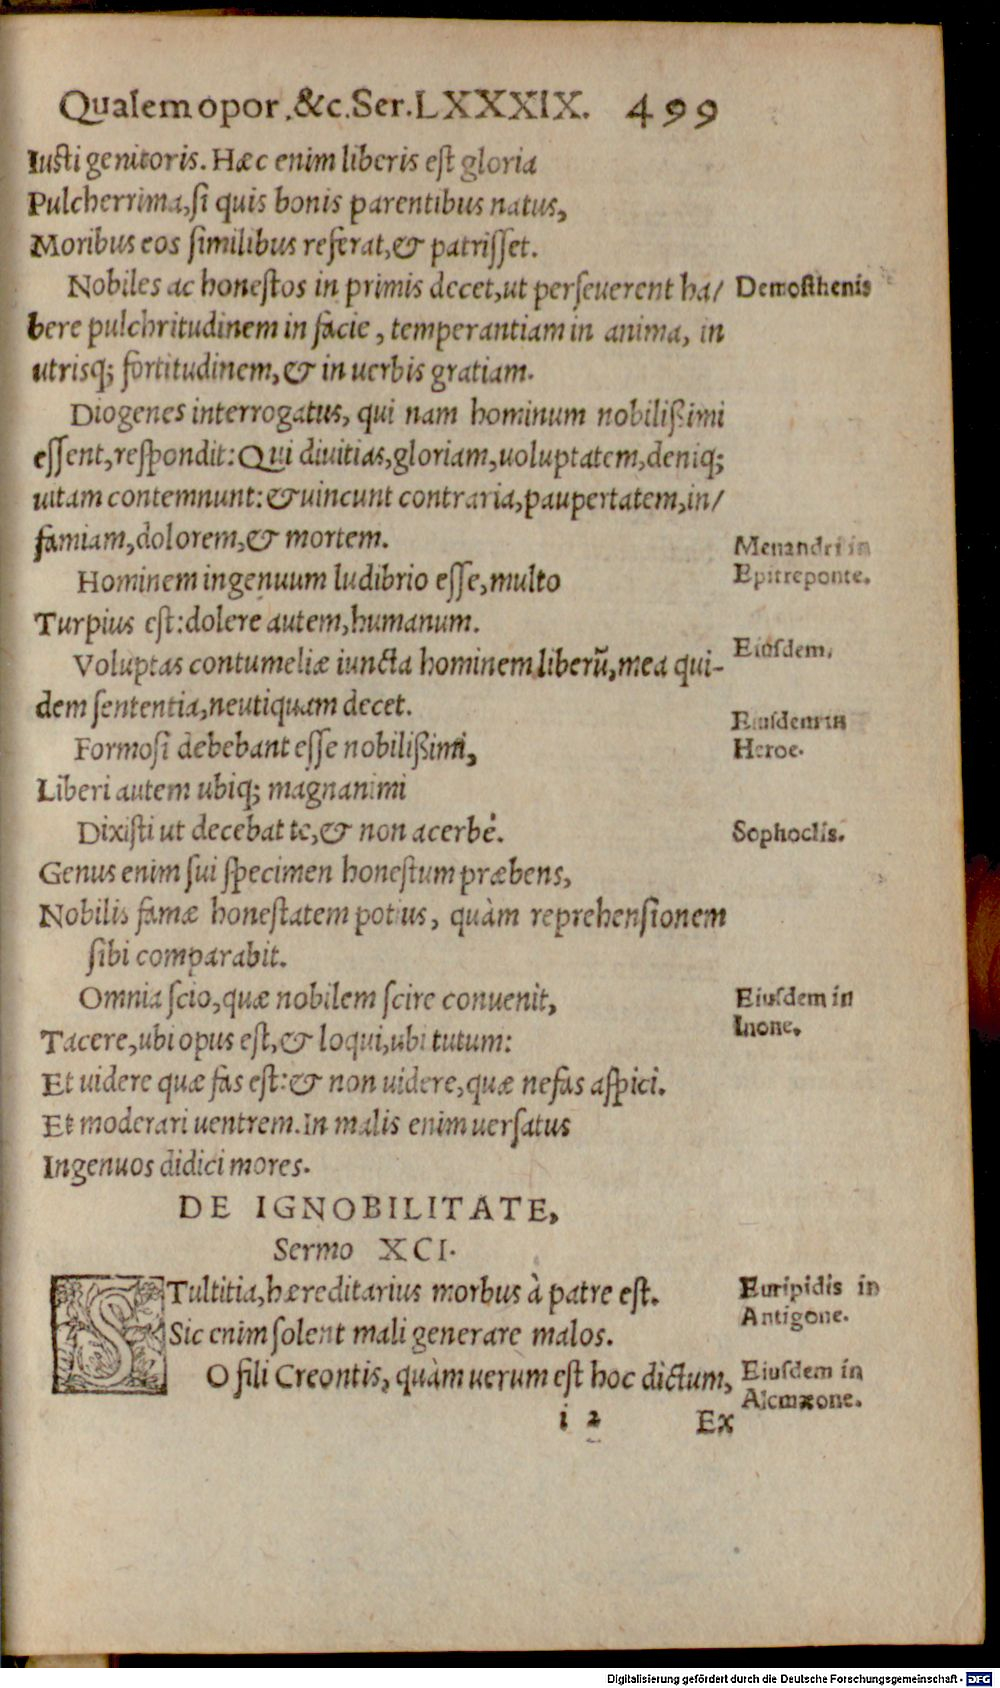 Qualem opor .&c. Ser. LXXXIX. 499
Iusti genitoris. Hæc enim liberis est gloria
Pulcherrima, si quis bonis parentibus natus,
Moribus eos similibus referat, & patrisset.
Nobiles ac honestos in primis decet, ut perseuerent ha/
Demosthenis
bere pulchritudinem in facie, temperantiam in anima, in
utrisq; fortitudinem, & in uerbis gratiam.
Diogenes interrogatus, qui nam hominum nobilißimi
essent, respondit: Qui diuitias, gloriam, uoluptatem, deniq;
uitam contemnunt: & uincunt contraria, paupertatem, in/
famiam, dolorem, & mortem.
Menandri in
Epitreponte.
Hominem ingenuum ludibrio esse, multo
Turpius est: dolere autem, humanum.
Voluptas contumeliæ iuncta hominem liberũ, mea qui-
Eiusdem.
dem sententia, neutiquam decet.
Eiusdem in
Heroe.
Formosi debebant esse nobilißimi,
Liberi autem ubiq; magnanimi
Dixisti ut decebat te, & non acerbè.
Sophoclis.
Genus enim sui specimen honestum præbens,
Nobilis famæ honestatem potius, quàm reprehensionem
sibi comparabit.
Omnia scio, quæ nobilem scire conuenit,
Eiusdem in
Inone.
Tacere, ubi opus est, & loqui, ubi tutum:
Et uidere quæ fas est: & non uidere, quæ nefas aspici.
Et moderari uentrem. In malis enim uersatus
Ingenuos didici mores.
DE IGNOBILITATE,
Sermo XCI.
STultitia, hæreditarius morbus à patre est.
Euripidis in
Antigone.
Sic enim solent mali generare malos.
O fili Creontis, quàm uerum est hoc dictum,
Eiusdem in
Alcmæone.
i 2 Ex
Digitalisierung gefördert durch die Deutsche Forschungsgemeinschaft - DFG